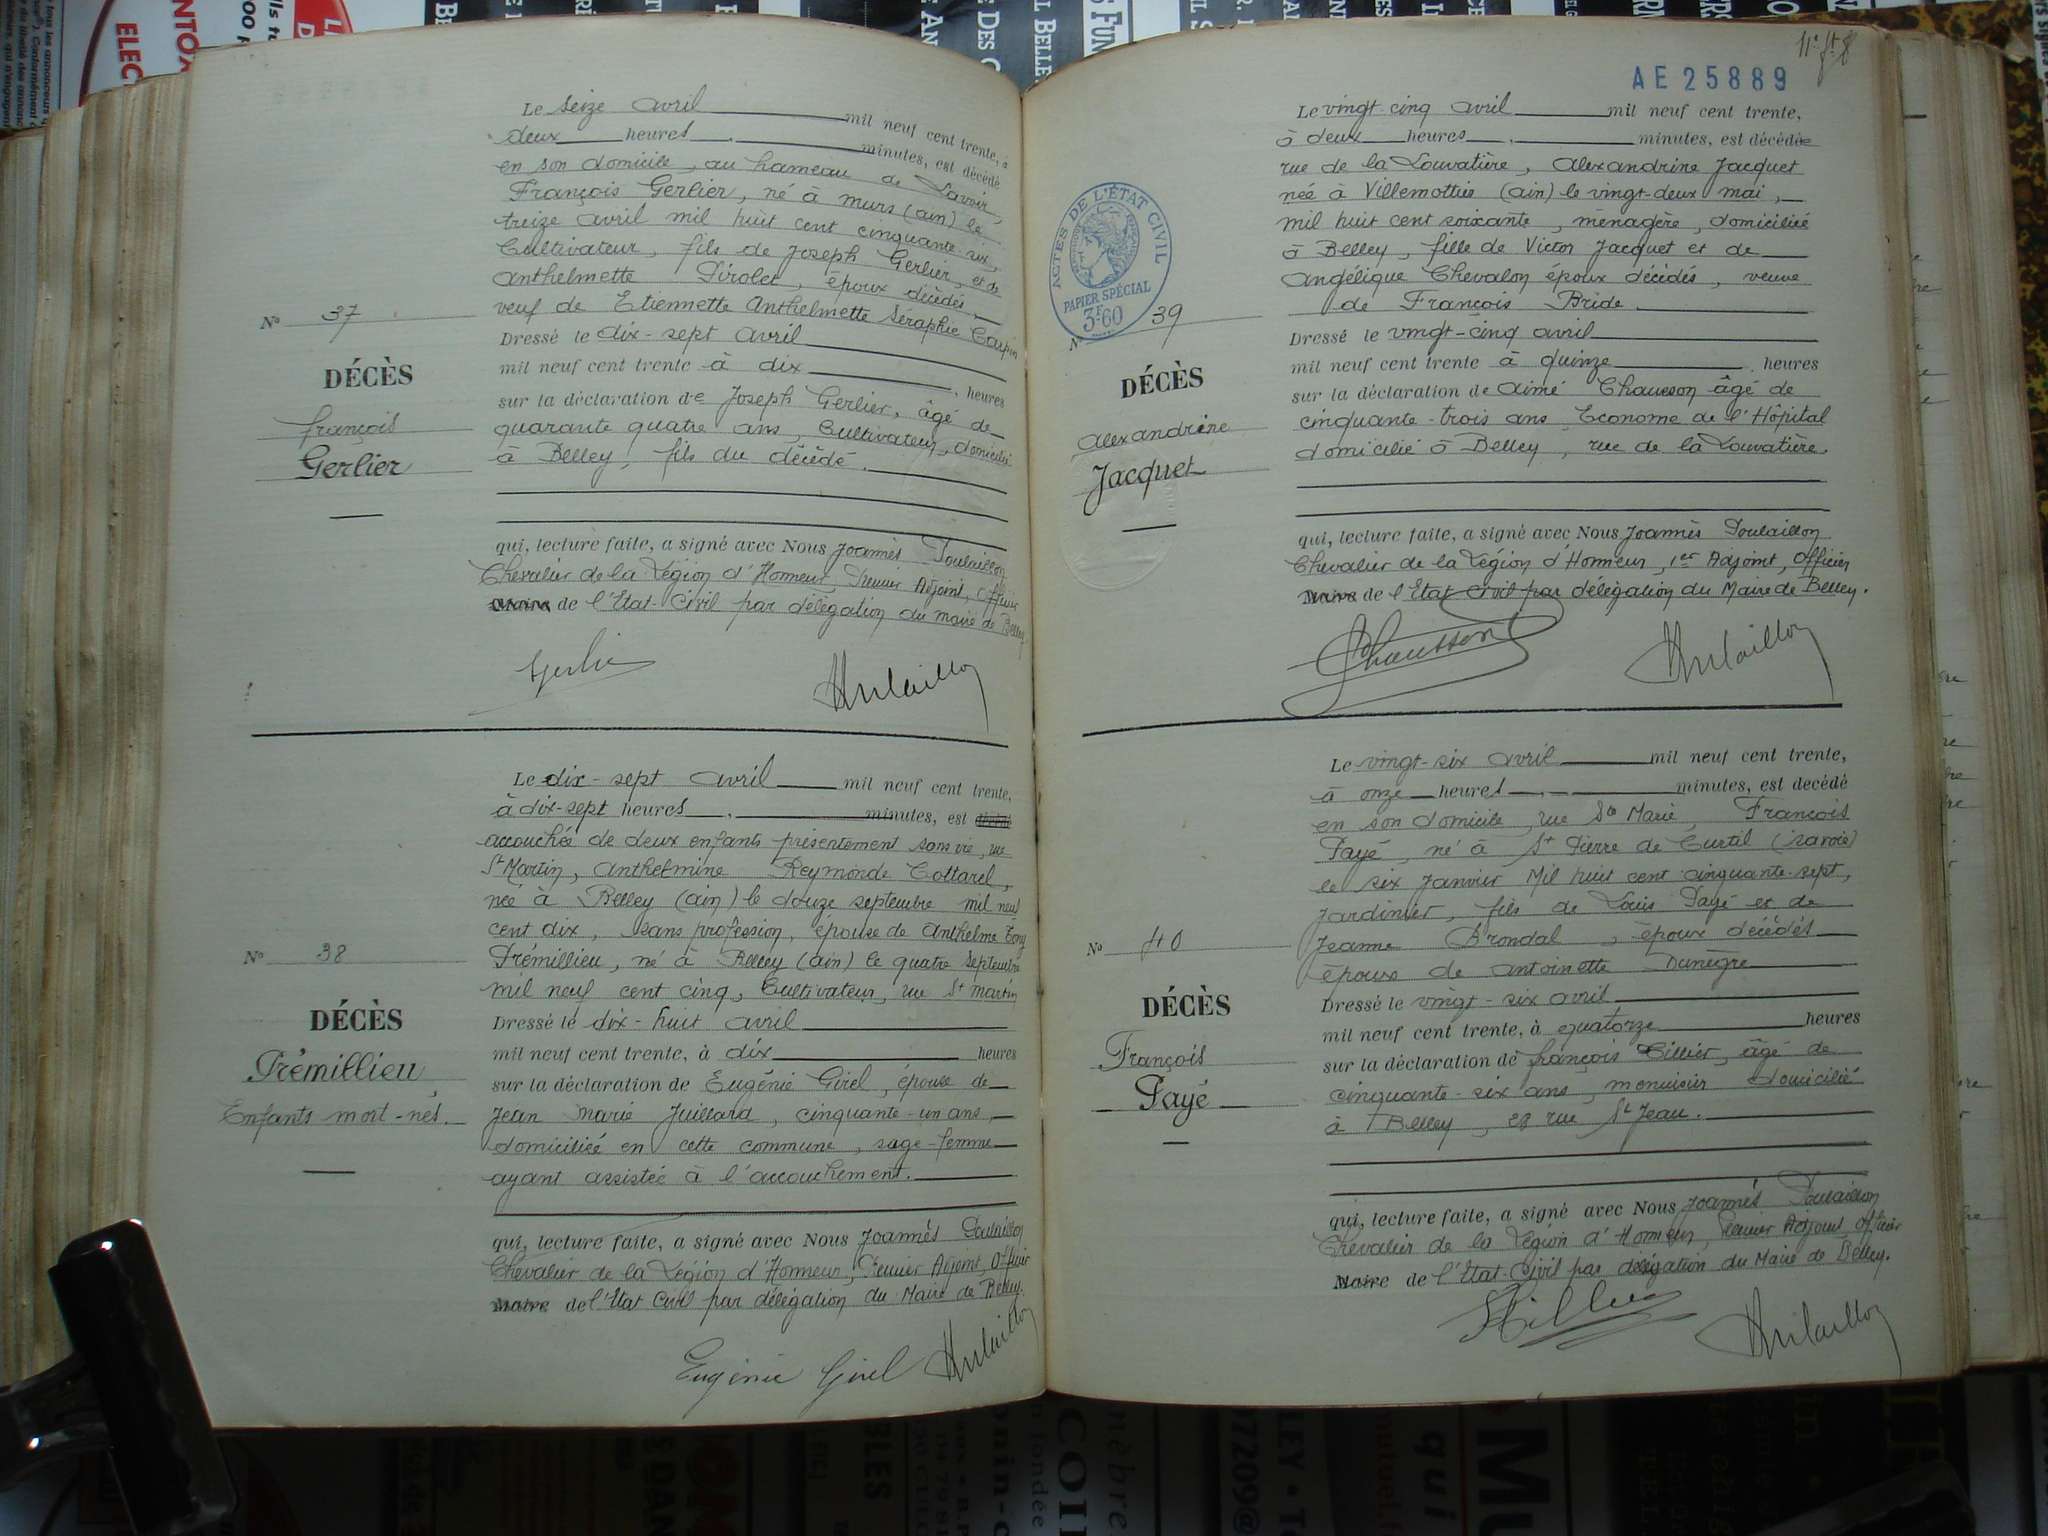 Le seize avril mil neuf cent trente, à
deux heures, minutes, est décédé
en son domicile, au hameau de Lavoir,
François Gerlier, né à Murs (ain) le
treize avril mil huit cent cinquante-six,
Cultivateur, fils de Joseph Gerlier, et de
Anthelmette Pirolet, époux décédés,
veuf de Etiennette Anthelmette Séraphie Carpin
No 37
Dressé le dix-sept avril
DÉCÈS
mil neuf cent trente à dix, heures
sur la déclaration de Joseph Gerlier, âgé de
françois
quarante quatre ans, Cultivateur, domicilié
Gerlier
à Belley, fils du décédé.
qui, lecture faite, a signé avec Nous Joannès Poulaillon
Chevalier de la Légion d'Honneur Premier Adjoint, Officier
Maire de l'Etat-Civil par délégation du maire de Belley
Le dix-sept avril mil neuf cent trente,
à dix-sept heures, minutes, est décédé
accouchée de deux enfants présentement sans vie, rue
St Martin, Anthelmine Reymonde Cottarel,
née à Belley (ain) le douze septembre mil neuf
cent dix, sans profession, épouse de Anthelme Tony
No 38
Prémillieu, né à Belley (ain) le quatre septembre
mil neuf cent cinq, Cultivateur, rue St Martin
DÉCÈS
Dressé le dix-huit avril
Prémillieu
mil neuf cent trente, à dix heures
sur la déclaration de Eugénie Girel, épouse de
Enfants mort-nés.
Jean Marie Juillard, cinquante-un ans,
domiciliée en cette commune, sage-femme
ayant assistée à l'accouchement.
qui, lecture faite, a signé avec Nous Joannès Poulaillon
Chevalier de la Légion d'Honneur, Premier Adjoint, Officier
Maire de l'Etat Civil par délégation du Maire de Belley.
Eugénie Girel
11e ft 8
AE25889
Le vingt-cinq avril mil neuf cent trente,
à deux heures, minutes, est décédée
rue de la Louvatière, Alexandrine Jacquet
née à Villemottie (ain) le vingt-deux mai,
mil huit cent soixante, menagère, domiciliée
à Belley, fille de Victor Jacquet et de
Angélique Chevalon époux décédés, veuve
de François Bride.
ACTES DE L'ÉTAT CIVIL
PAPIER SPÉCIAL
3F60
No 39
Dressé le vingt-cinq avril
DÉCÈS
mil neuf cent trente à quinze heures
sur la déclaration de Aimé Chausson âgé de
Alexandrine
cinquante-trois ans, Econome de l'Hôpital
Jacquet
domicilié à Belley, rue de la Louvatière.
qui, lecture faite, a signé avec Nous Joannès Poulaillon
Chevalier de la Légion d'Honneur, 1er Adjoint, Officier
Maire de l'Etat Civil par délégation du Maire de Belley.
Chausson
Le vingt-six avril mil neuf cent trente,
à onze heures, minutes, est decédé
en son domicile, rue Ste Marie, François
Payé, né à St Pierre de Curtil (savoie)
le six Janvier mil huit cent cinquante-sept,
Jardinier, fils de Louis Payé et de
No 40
Jeanne Brondal, époux décédés
épouse de antoinette Dunègre
DÉCÈS
Dressé le vingt-six avril
mil neuf cent trente, à quatorze heures
François
sur la déclaration de françois Tillier, âgé de
Payé
cinquante-six ans, menuisier domicilié
à Belley, 28 rue St Jean.
qui, lecture faite, a signé avec Nous Joannès Poulaillon
Chevalier de la Légion d'Honneur, Premier Adjoint officier
Maire de l'Etat-Civil par délégation du Maire de Belley.